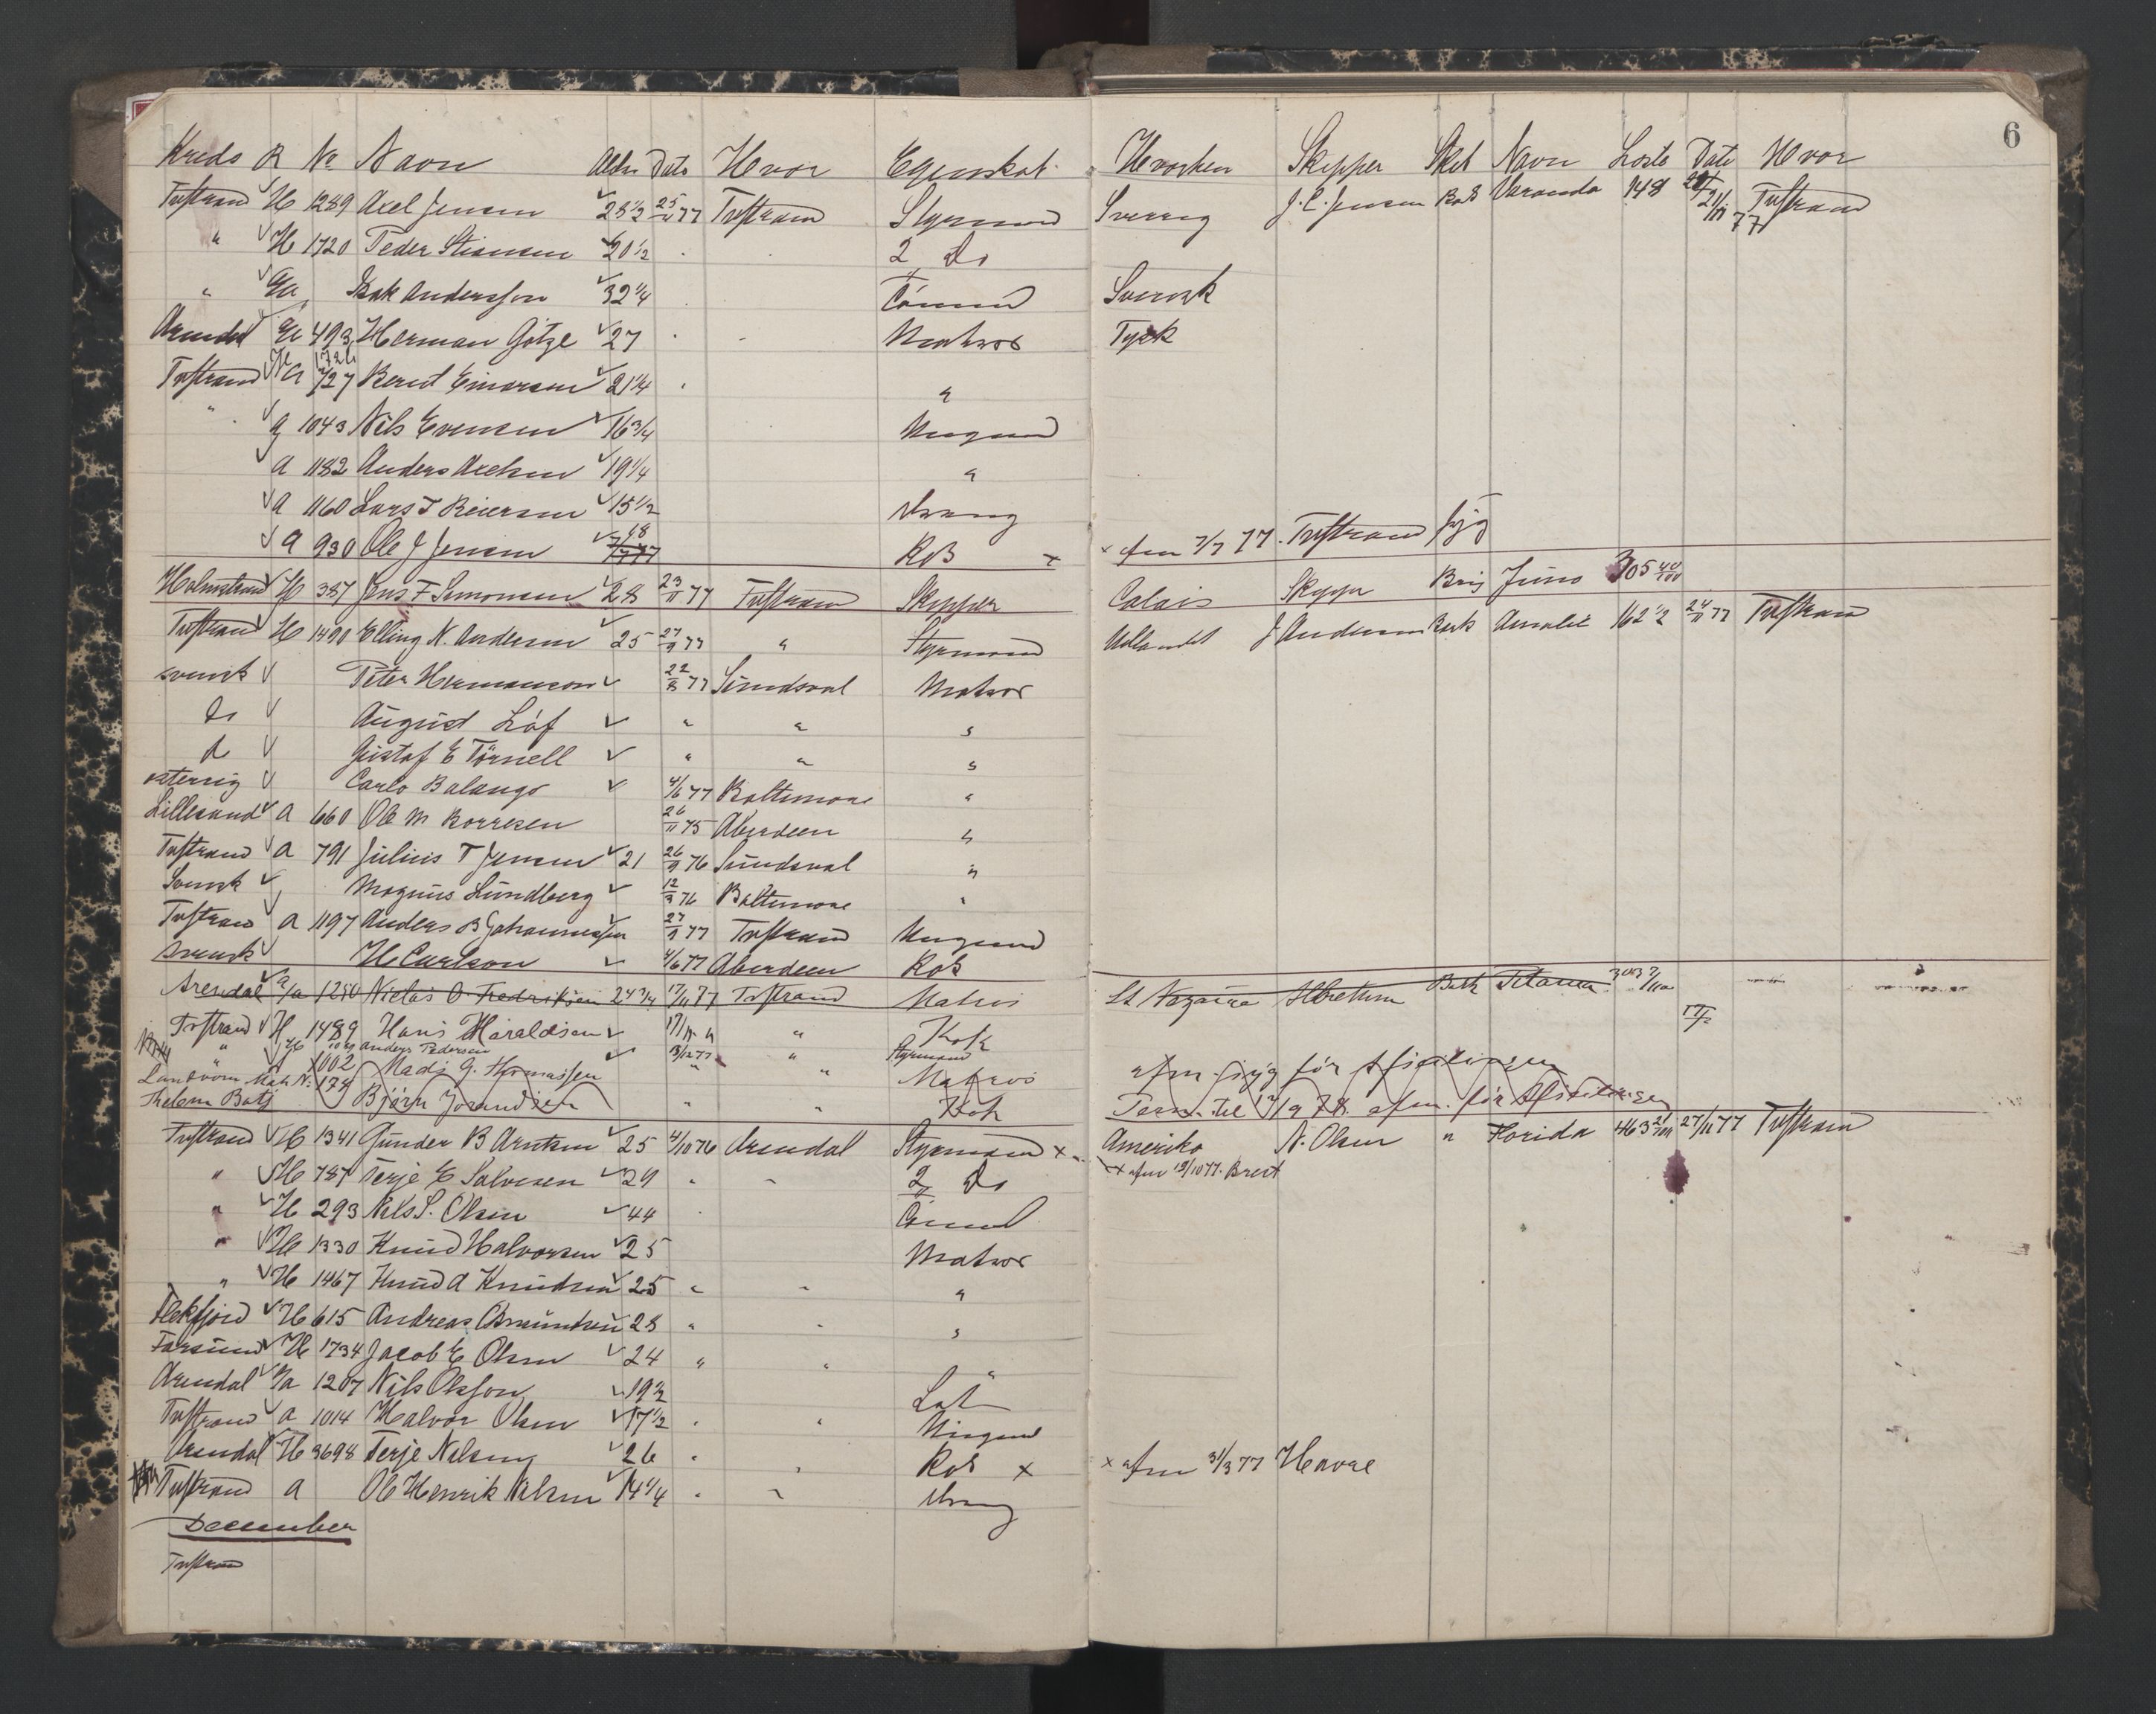 6
Kreds R No Navn Alder Dato Hvor Egenskab Hvorhen Skipper Skib Navn Læste Dato Hvor
Tvestrand H 1289 Axel Jensen 28 1/2 77 Tvestrand Styrmand Sverrig J. C. Jensen Veranda 148 Tvestrand
" H 1720 Peder 20 1/2 2 Do
" Isak Andersson 32 1/4 Tömmd Svensk
Arendal 493 Herman Götze 27 Matros Tysk
Tvestrand 727 Berent Einersen 21 1/4 "
" a 1043 Nils Evensen 16 3/4 Ungmd
a 1182 Anders Axelsen 19 1/4 "
a 1160 Lars T Reiersen 15 1/2 Dræng
a 930 Ole J Jensen Kok x x afm 7/7 77. Tvestrand syg
Holmestrand H 387 Jens F Simonsen 28 23/11 77 Tvestrand Skipper Calais Skipper Brig Juno 305 44/100
Tvestrand H 1490 Elling N. Andersen 25 27/9 77 " Styrmand Udlandet J Andersen Bark Amalie 162 1/2 24/11 77 Tvestrand
svensk Peter Hermanson 22/8 77 Sundsval Matros
do August Löf " " "
do Gustaf E Törnell " " "
østerrig Carlo Balango 4/6 77 Baltimore "
Lillesand a 660 Ole M Borresen 26/11 75 Aberdeen "
Tvestrand a 791 Julius T Jensen 21 26/9 76 Sundsval "
Svensk Magnus Lundberg 12/3 76 Baltimore "
Tvestrand a 1197 Anders B Johannessen 27/9 77 Tvestrand Ungmand
svensk H Carlson 4/6 77 Aberdeen Kok
Arendal a/a 1250 Niclas O. Fredriksen 24 3/4 17/11 77 Tvestrand Matros St Nazaire Bark Titania
Tvestrand H 1489 Hans Haraldsen 17/11 " Kok
" H Anders Pedersen 13/12 77 " Styrmand
" 1002 Mads G. Thomassen " " Matros afm. syg før Afseilingen
174 Bjørn " " Kok afm. før Afseilingen
Tvestrand H 1341 Gunder B Arntsen 25 4/10 76 Arendal Styrmand x Amerika N. Olsen " Florida 463 27/11 77 Tvestrand
" H 787 Terje E Salvesen 29 " " 2 Do x afm 12/10 77. Brest
" H 293 Nils S. Olsen 44 Tömmd
" H 1330 Knud Halvorsen 25 Matros
" H 1467 Knud A Knudsen 25 " " "
Flekfjord H 615 Andreas Osmundsen 28 " " "
Farsund H 1734 Jacob E Olsen 24 " " "
Arendal a 1207 Nils Olsson 19 1/2 Let
Tvestrand a 1014 Halvor Olsen 17 1/2 " " Ungmd
Arendal H 3698 Terje Nilsen 26 " " Kok x x afm 31/3 77 Havre
Tvestrand a Ole Henrik Nilsen 14 1/4 " " Dræng
December
Tvestrand